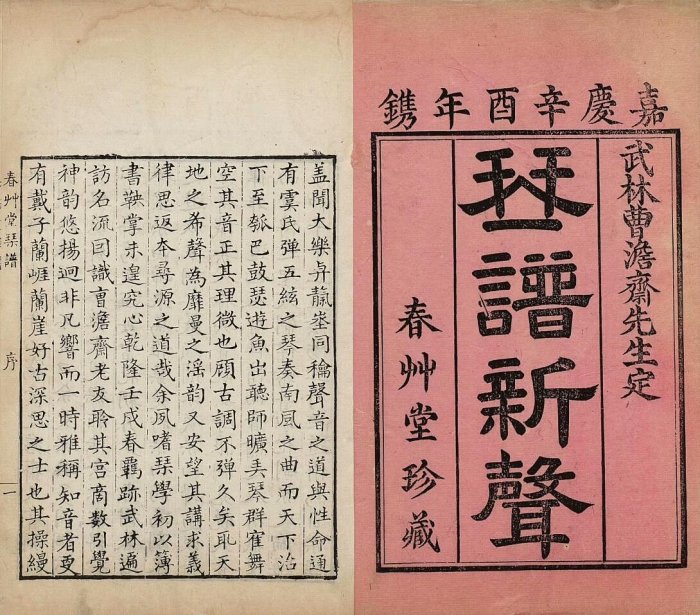 嘉慶辛酉年鐫
武林曹澹齋先生定
琴譜新聲
春艸堂珍藏
盖聞大樂與靝埊同龢聲音之道與性命通
有虞氏彈五絃之琴奏南風之曲而天下治
下至瓠巴鼓瑟遊魚出聽師曠弄琴群隺舞
空其音正其理微也顧古調不彈久矣耴天
地之希聲為靡曼之滛韵又安望其講求義
律思返本尋源之道哉余夙嗜琹學初以簿
書鞅掌未遑究心乾隆壬戌春羈跡武林遍
訪名流囙識曺澹齋老友聆其宮商數引覺
神韵悠揚迥非凡響而一時雅稱知音者更
有戴子蘭崕蘭崖好古深思之士也其操縵
春艸堂琹譜
序
一